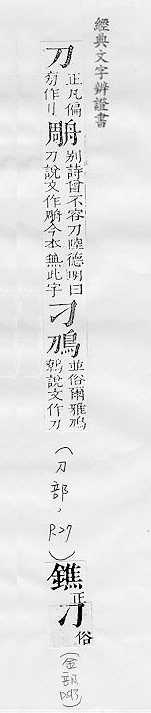 經典文字辨證書
刀
正凡偏
旁作刂
別詩曾不容刀陸德明曰
刀說文作今本無此字
刁鳭
並俗爾雅鳭
鷯說文作刀
（刀部，P.27）
鐎正
刁俗
（金部P.93）